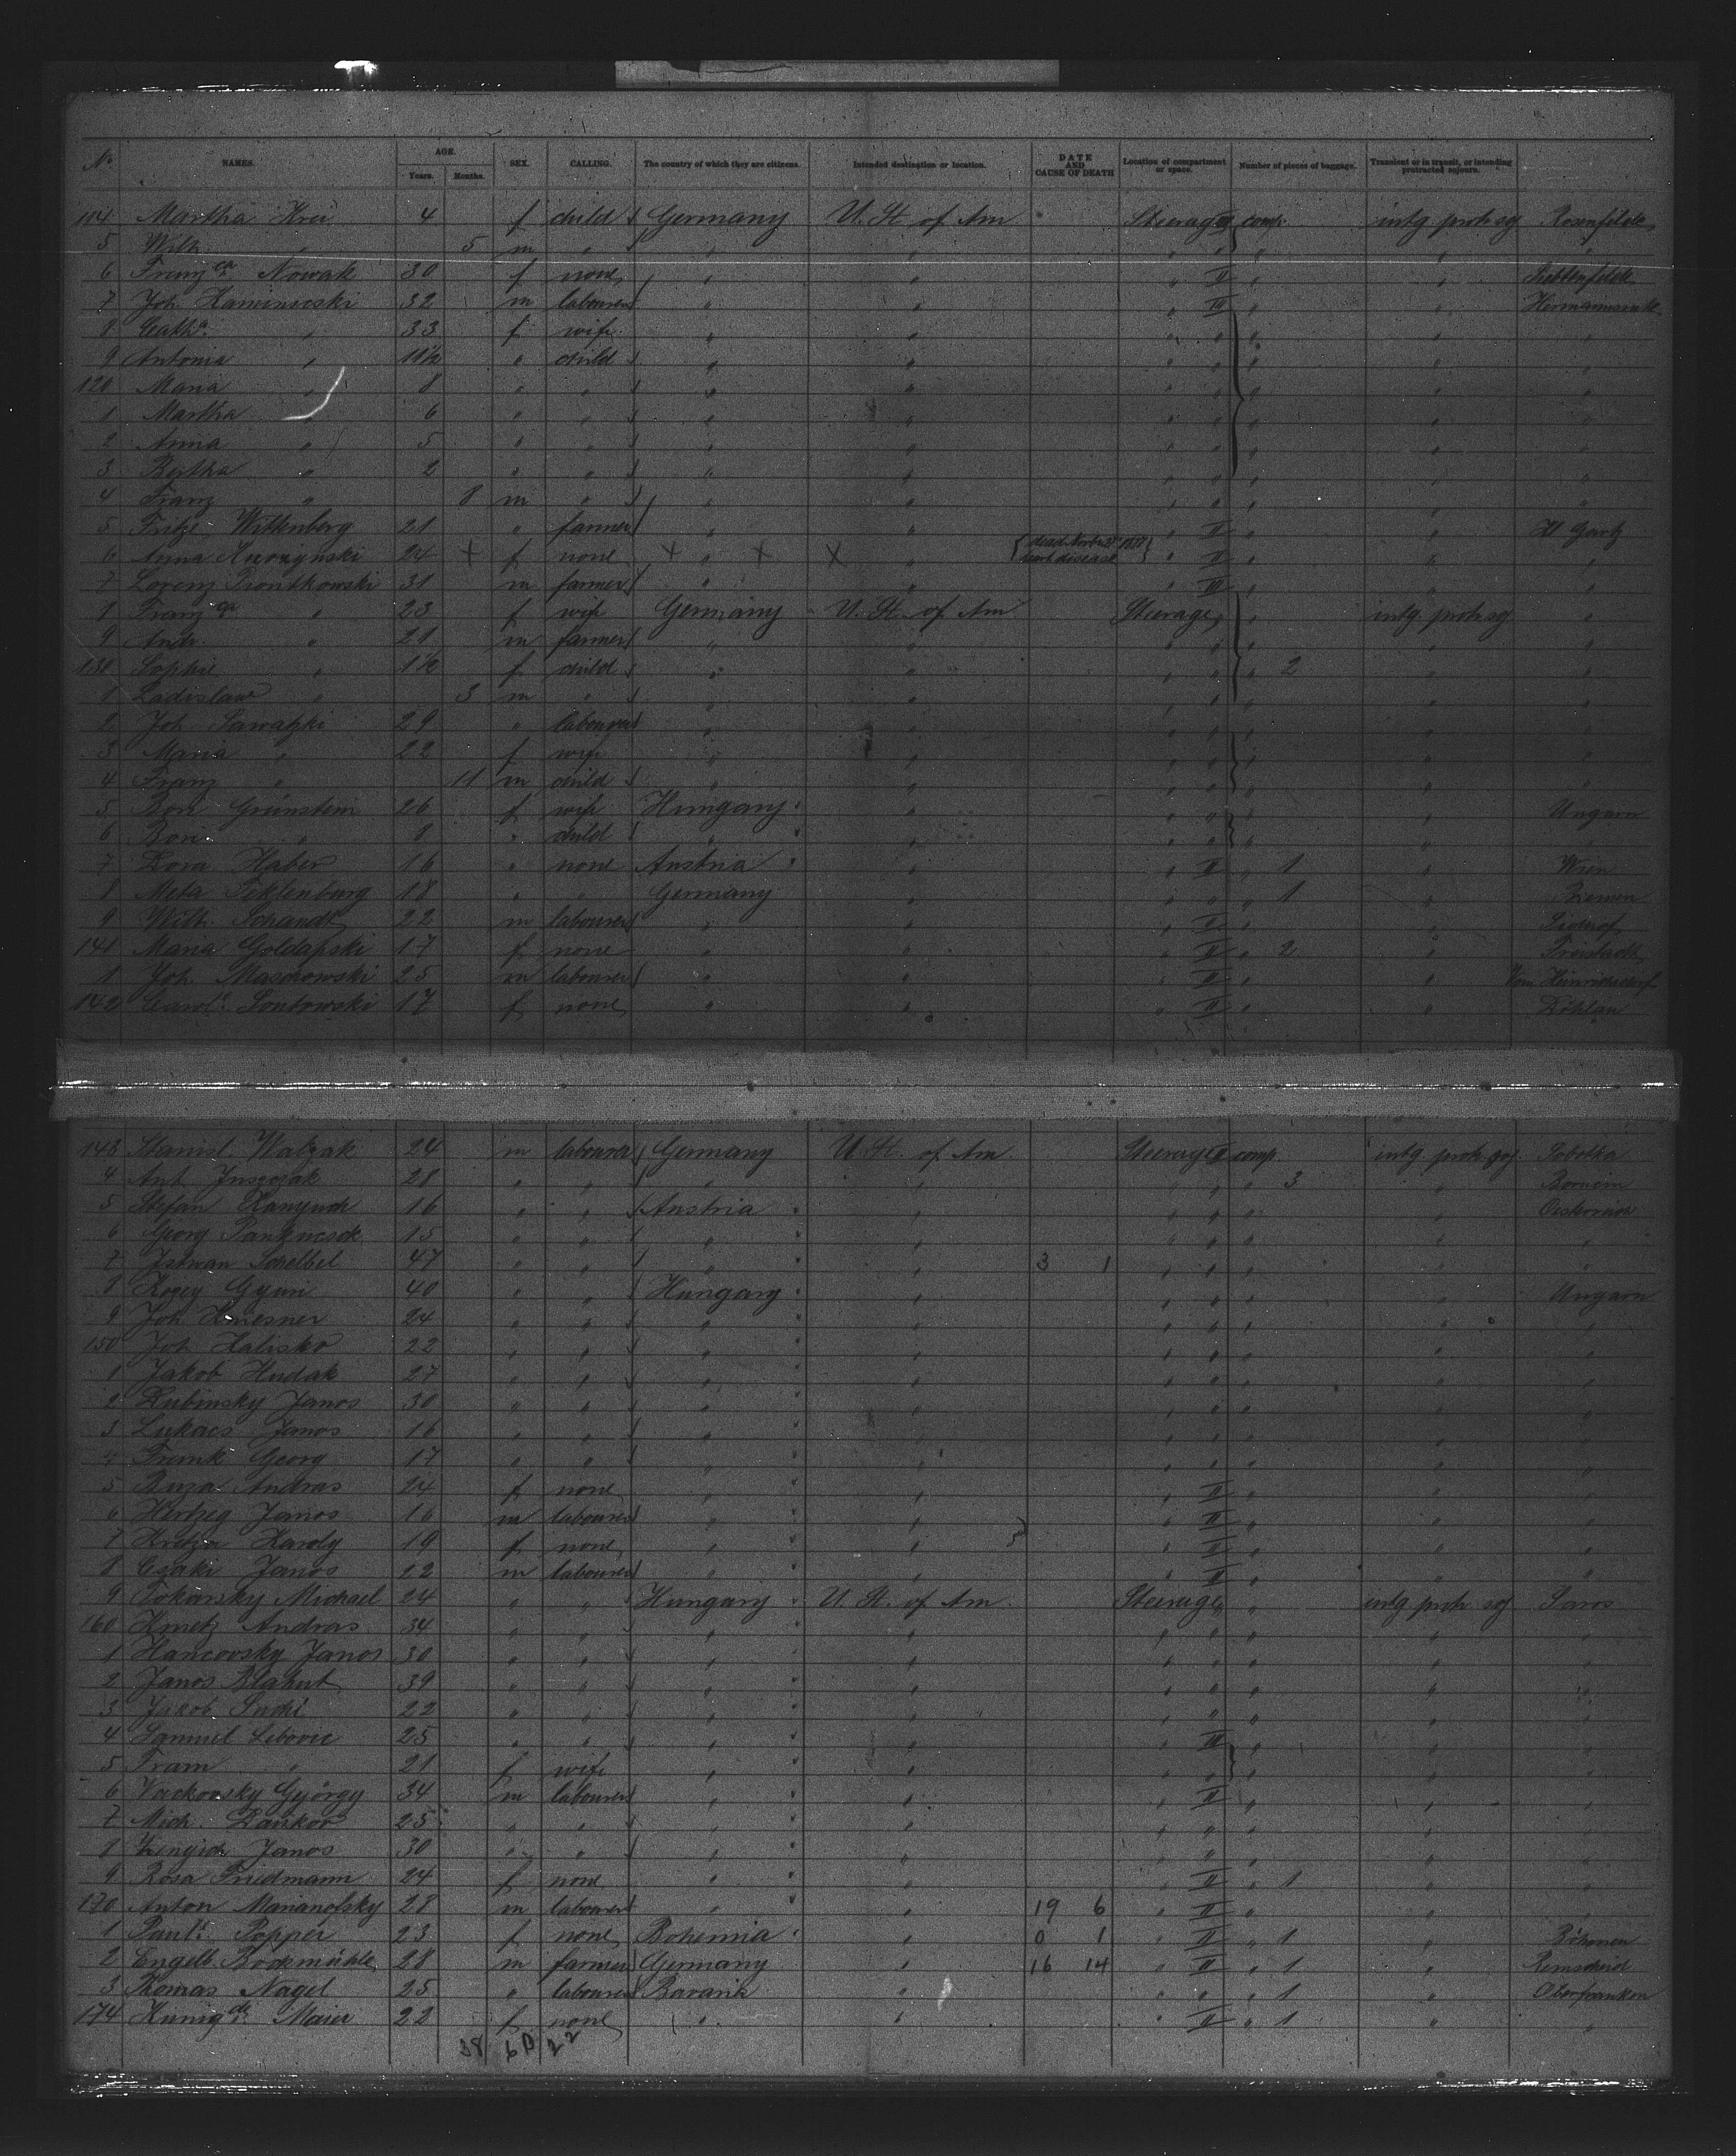 No. NAMES. AGE. Years. Months. SEX. CALLING. The country of which they are citizens. Intended destination or location. DATE AND CAUSE OF DEATH Location of compartment or space. Number of pieces of baggage. Transient or in transit, or intending protracted sojourn.
114 Martha 4 f child Germany U. St. of Am Steerage III comp. intg protr. soj Rosenfelde
5 Wilh. " 5 m " " " " " " "
6 Franz ca Nowak 30 f none " " " II " "
7 Joh. Kaminuski 32 m labourer " " " III " "
8 Cath a " 33 f wife " " " " " " "
9 Antonia " 11½ " child " " " " " " "
120 Maria " 8 " " " " " " " " "
1 Martha " 6 " " " " " " " " "
2 Anna " 5 " " " " " " " " "
3 Bertha " 2 " " " " " " " " "
4 Franz " 8 m " " " " " " " "
5 Fritz Wittenberg 21 " farmer " " " II " "
6 Anna Kurzynski 24 + f none X " X X " dead heart disease " II " " "
7 Lorenz Piontkowski 31 m farmer " " " III " " "
8 Franz ca " 23 f wife Germany U. St. of Am Steerage " " intg. protr. soj "
9 Andr. " 21 m farmer " " " " " " "
130 Sophie " 1½ f child " " " " " 2 " "
1 Ladislaw " 3 m " " " " " " " "
2 Joh. Sawatzki 29 " labourer " " " " " " "
3 Maria " 22 f wife " " " " " " "
4 Franz " 11 m child " " " " " " "
5 Bori Grünstein 26 f wife Hungary " " " " " Ungarn
6 Bori " 8 " child " " " " " " "
7 Dora Haber 16 " none Austria " " II " 1 " Wien
8 Meta Teklenburg 18 " " Germany " " " " 1 " Bremen
9 Wilh. Schandt 22 m labourer " " " II " "
141 Maria Goldapski 17 f none " " " II " 2 " Freistadt
1 Joh. Maschowski 25 m labourer " " " II " " Heinrichsdorf
142 Carol. Sontowski 17 f none " " " II " " Döhlau
143 Stanisl. Walzak 24 m labourer Germany U. St. of Am. Steerage II comp. intg. protr. soj. Sobotka
4 Ant. 28 " " " " " " " 3 "
5 Stefan 16 " " Austria " " " " " Oesterreich
6 Georg 15 " " " " " " " " "
7 Istwan Schelbel 47 " " " " 3 1 " " " " "
8 Kogey Gyuri 40 " " Hungary " " " " " Ungarn
9 Joh. Kmesner 24 " " " " " " " " "
150 Joh. Halisko 22 " " " " " " " " "
1 Jakob Hudak 27 " " " " " " " " "
2 Dubinsky Janos 30 " " " " " " " " "
3 Lukacs Janos 16 " " " " " " " " "
4 Frank Georg 17 " " " " " " " " "
5 Buza Andras 24 f none " " " II " " "
6 Hertzeg Janos 16 m labourer " " " II " " "
7 Kretza Karoly 19 f none " " " II " " "
8 Csaki Janos 22 m labourer " " " II " " "
9 Tokarsky Michael 24 " " Hungary U. St. of Am. Steerage " " intg protr. soj Saros
160 Kmetz Andras 34 " " " " " " " "
1 Hancovsky Janos 30 " " " " " " " "
2 Janos Blahut 39 " " " " " " " "
3 Jakob 22 " " " " " " " "
4 Samuel Lebovic 25 " " " " " III " "
5 Fram " 21 f wife " " " " " "
6 Vackovsky György 34 m labourer " " " II " " "
7 Mich. Dankov 25 " " " " " " " "
8 Janos 30 " " " " " " " "
9 Rosa Friedmann 24 f none " " " II " 1 " "
170 Anton Marianofsky 28 m labourer " " 19 6 " II " " "
1 Paul. Popper 23 f none Bohemia " 0 1 " II " 1 " Böhmen
2 Engelb. Bockmühle 28 m farmer Germany " 16 14 " II " 1 " Remscheid
3 Thomas Nagel 25 " labourer Bavaria " " " " 1 " Oberfranken
174 Kunig de. Maier 22 f none " " " II " 1 " "
38 6B 22